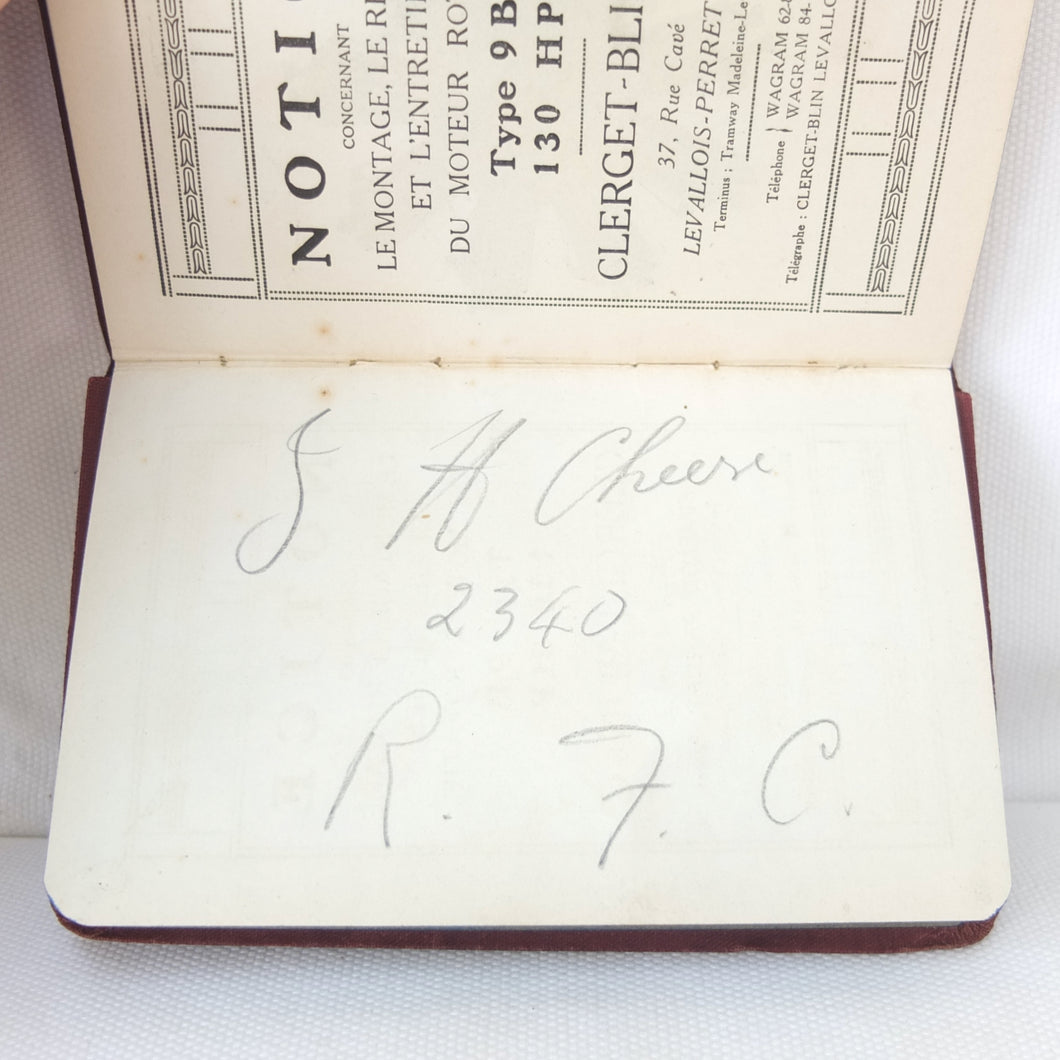 NOTI
CONCERNANT
LE MONTAGE, LE R
ET L'ENTRETI
DU MOTEUR RO
Type 9 B
130 HP
CLERGET-BLI
37, Rue Cavé
LEVALLOIS-PERRET
Terminus : Tramway Madeleine-Le
Téléphone } WAGRAM 62-
WAGRAM 84-
Télégraphe : CLERGET-BLIN LEVALLO
J H Cheese
2340
R. F. C.